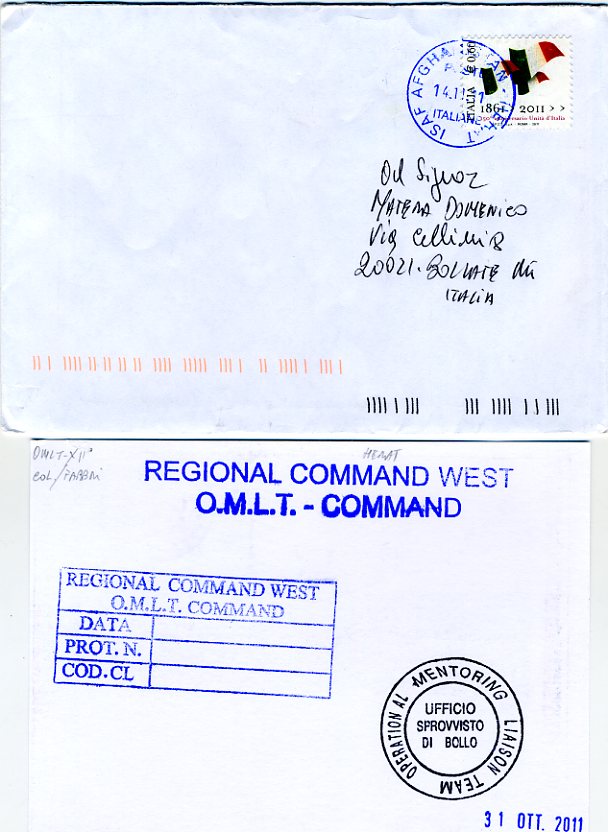 ISAF AFGHANISTAN - HERAT
POSTE
14.11.11
ITALIANE
ITALIA € 0,60
1861 > 2011 > >
150° anniversario Unità d'Italia
Signor
MATERA DOMENICO
Via Cellini 8
20021. BOLLATE Mi
ITALIA
OMLT-XII°
COL/FABBRI
HERAT
REGIONAL COMMAND WEST
O.M.L.T. - COMMAND
REGIONAL COMMAND WEST
O.M.L.T. COMMAND
DATA
PROT. N.
COD.CL
OPERATIONAL MENTORING LIAISON TEAM
UFFICIO
SPROVVISTO
DI BOLLO
31 OTT. 2011